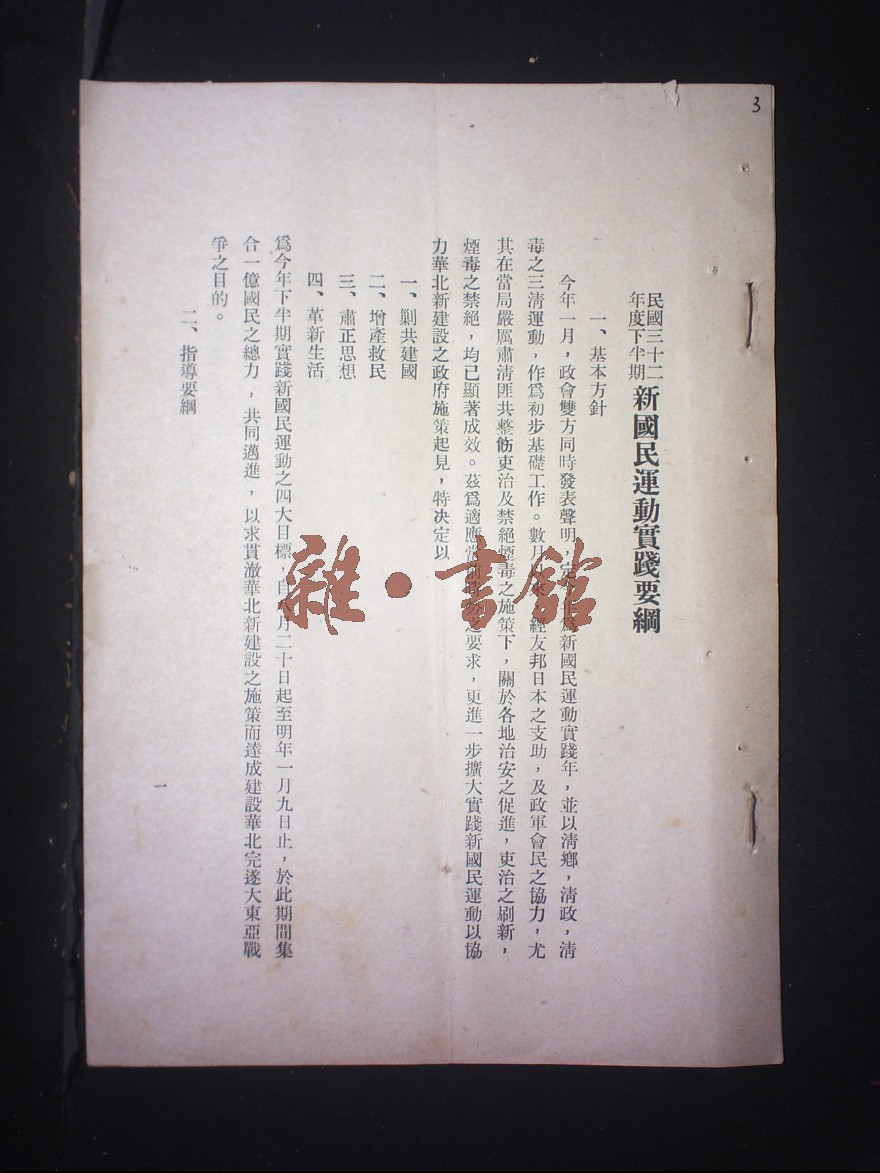 3
民國三十二
年度下半期
新國民運動實踐要綱
一、基本方針
今年一月，政會雙方同時發表聲明，定今年爲新國民運動實踐年，並以淸鄉，淸政，淸
毒之三淸運動，作爲初步基礎工作。數月以來，經友邦日本之支助，及政軍會民之協力，尤
其在當局嚴厲肅淸匪共整飭吏治及禁絕煙毒之施策下，關於各地治安之促進，吏治之刷新，
煙毒之禁絕，均已顯著成效。茲爲適應當前之要求，更進一步擴大實踐新國民運動以協
力華北新建設之政府施策起見，特決定以
一、剿共建國
二、增產救民
三、肅正思想
四、革新生活
爲今年下半期實踐新國民運動之四大目標，自八月二十日起至明年一月九日止，於此期間集
合一億國民之總力，共同邁進，以求貫澈華北新建設之施策而達成建設華北完遂大東亞戰
爭之目的。
二、指導要綱
一
雜·書館